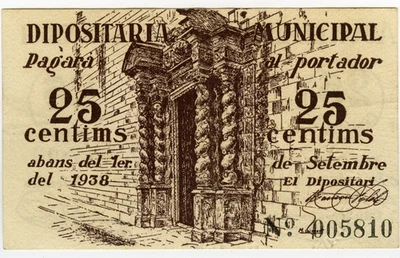 DIPOSITARIA MUNICIPAL
Pagará al portador
25 25
centims centims
abans del 1er. de Setembre
del 1938 El Dipositari
Nº 005810